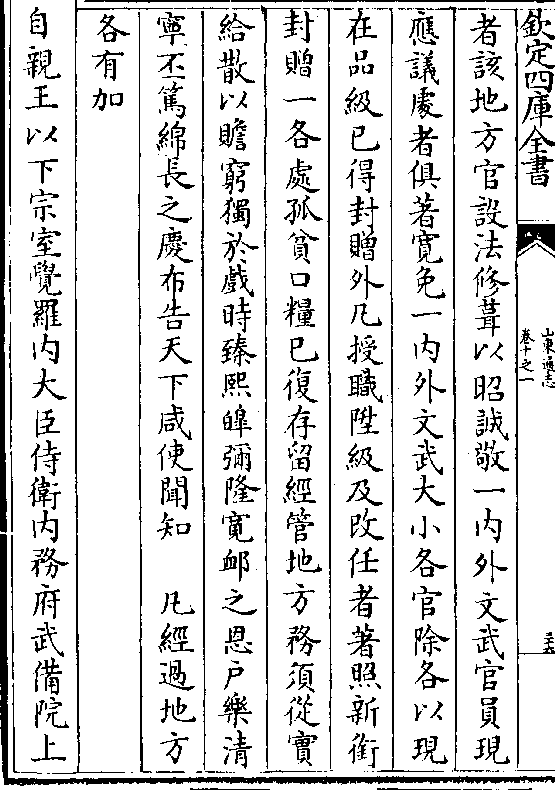 欽定四庫全書
山東通志
卷十之一
者該地方官設法修葺以昭誠敬一内外文武官員現
應議處者俱著寛免一内外文武大小各官除各以現
在品級已得封贈外凡授職陞級及改任者著照新銜
封贈一各處孤貧口糧已復存留經管地方務須從實
給散以贍窮獨於戲時臻熙皥彌隆寛䘏之恩户樂清
寧丕篤綿長之慶布告天下咸使聞知　凡經過地方
各有加
自親王以下宗室覺羅内大臣侍衛内務府武備院上